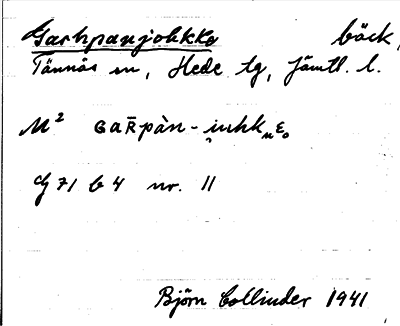 Garhpanjohkko bäck,
Tännäs sn, Hede tg, Jämtl. l.
M²
G 71 b 4 nr. 11
Björn Collinder 1941